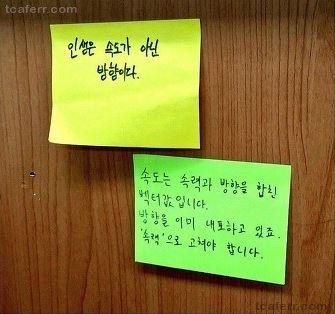 tcaferr.com
인생은 속도가 아닌
방향이다.
속도는 속력과 방향을 합친
벡터값입니다.
방향을 이미 내포하고 있죠.
'속력'으로 고쳐야 합니다.
tcaferr.com